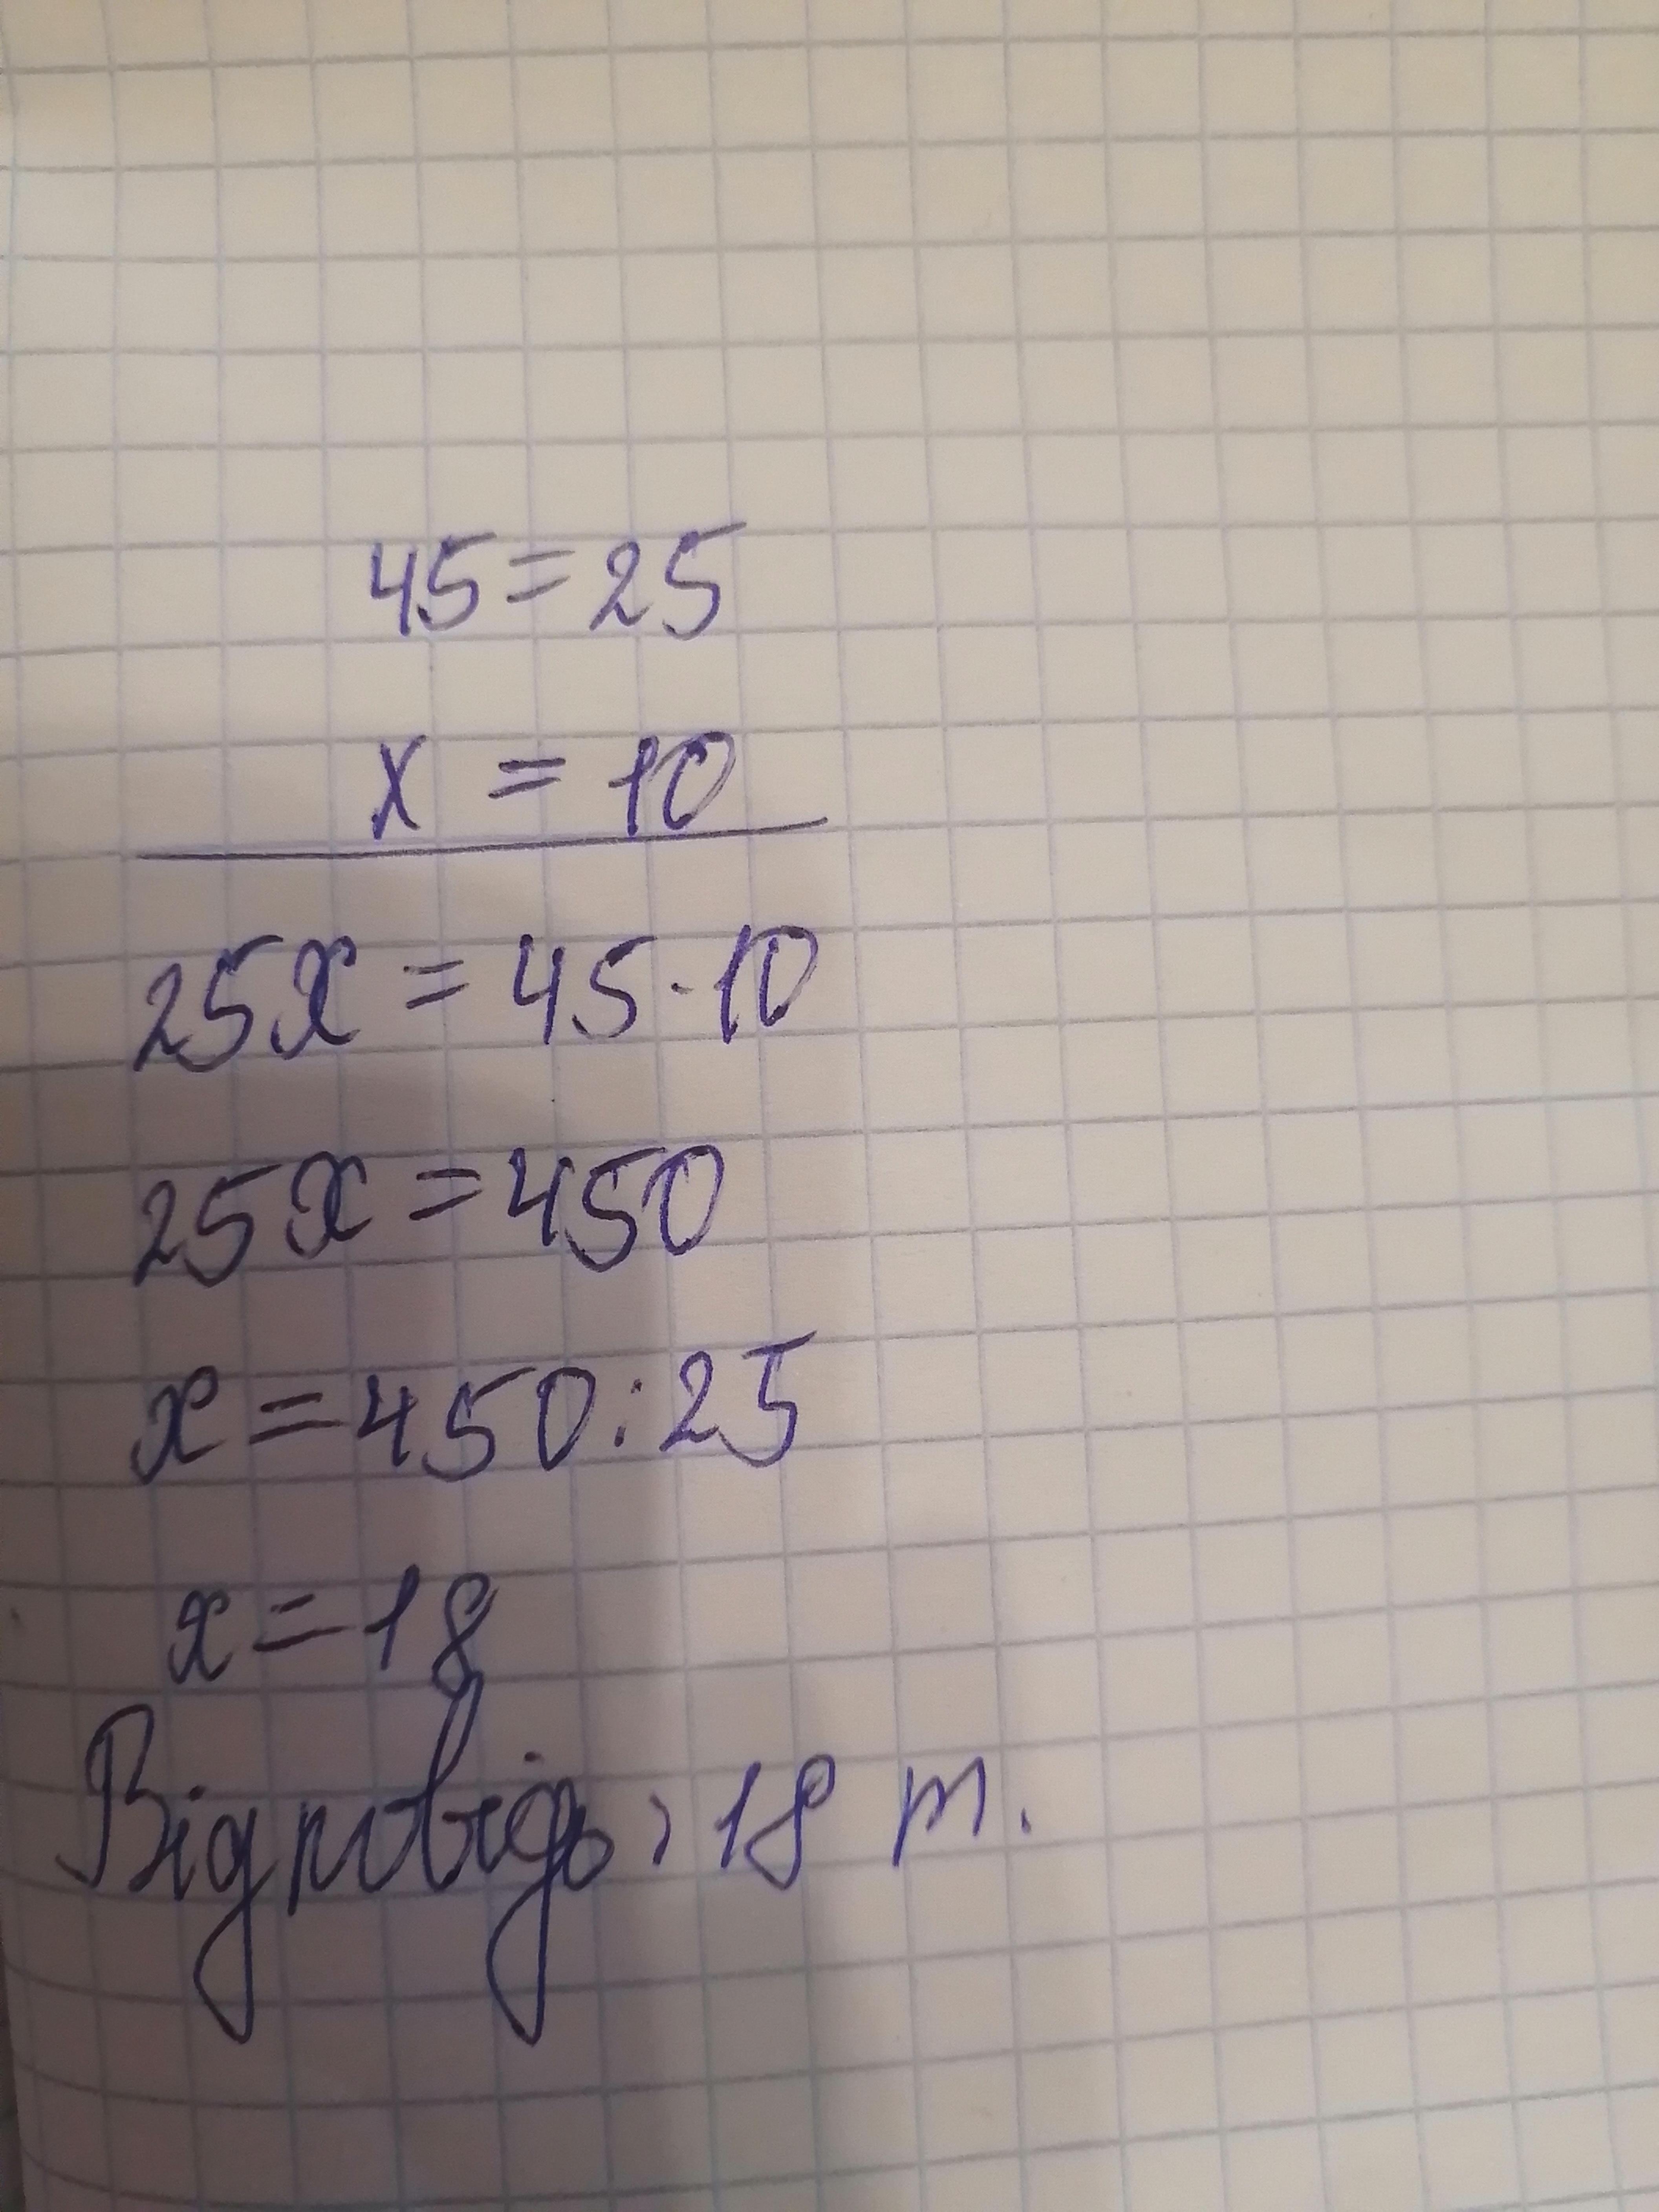 45=25
x = 10
25x = 45·10
25x = 450
x = 450:25
x = 18
Відповідь, 18 т.